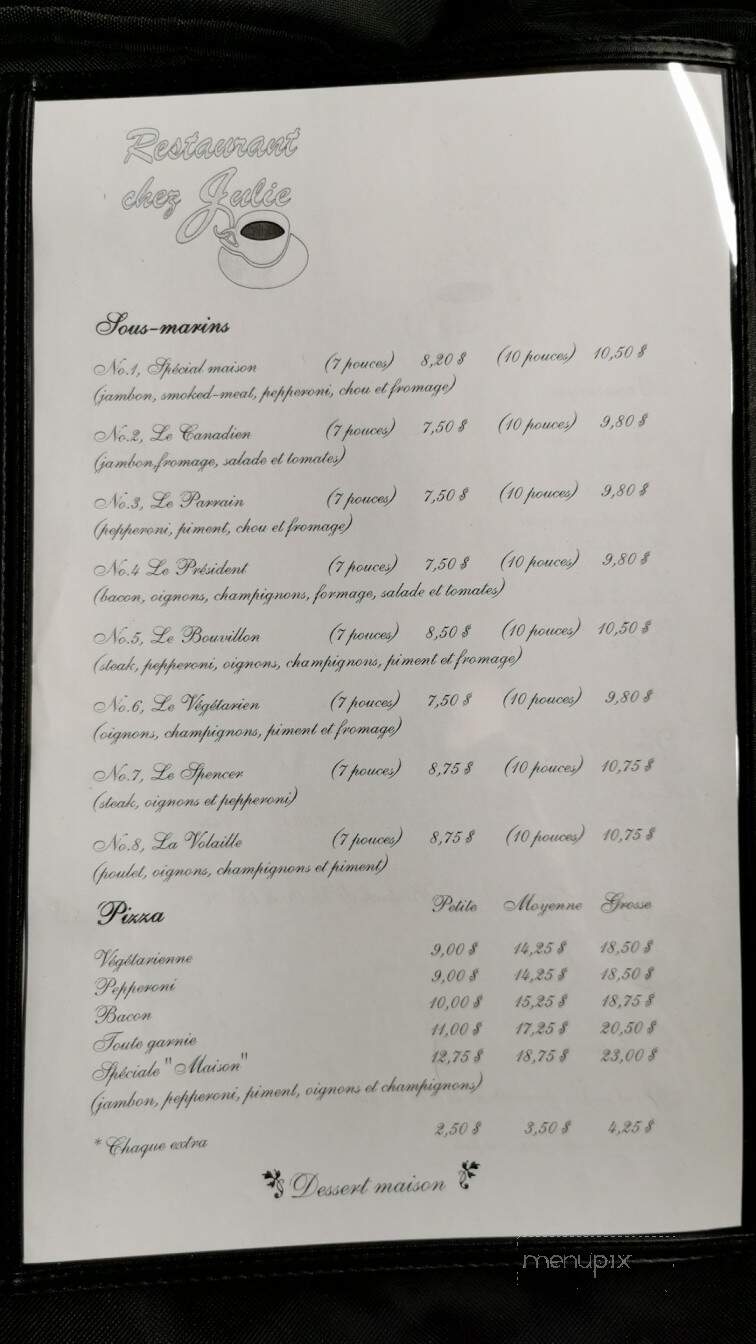 Restaurant
chez Julie
Sous-marins
No.1, Spécial maison (7 pouces) 8,20 $ (10 pouces) 10,50 $
(jambon, smoked-meat, pepperoni, chou et fromage)
No.2, Le Canadien (7 pouces) 7,50 $ (10 pouces) 9,80 $
(jambon,fromage, salade et tomates)
No.3, Le Parrain (7 pouces) 7,50 $ (10 pouces) 9,80 $
(pepperoni, piment, chou et fromage)
No.4 Le Président (7 pouces) 7,50 $ (10 pouces) 9,80 $
(bacon, oignons, champignons, formage, salade et tomates)
No.5, Le Bouvillon (7 pouces) 8,50 $ (10 pouces) 10,50 $
(steak, pepperoni, oignons, champignons, piment et fromage)
No.6, Le Végétarien (7 pouces) 7,50 $ (10 pouces) 9,80 $
(oignons, champignons, piment et fromage)
No.7, Le Spencer (7 pouces) 8,75 $ (10 pouces) 10,75 $
(steak, oignons et pepperoni)
No.8, La Volaille (7 pouces) 8,75 $ (10 pouces) 10,75 $
(poulet, oignons, champignons et piment)
Pizza Petite Moyenne Grosse
Végétarienne 9,00 $ 14,25 $ 18,50 $
Pepperoni 9,00 $ 14,25 $ 18,50 $
Bacon 10,00 $ 15,25 $ 18,75 $
Toute garnie 11,00 $ 17,25 $ 20,50 $
Spéciale "Maison" 12,75 $ 18,75 $ 23,00 $
(jambon, pepperoni, piment, oignons et champignons)
* Chaque extra 2,50 $ 3,50 $ 4,25 $
Dessert maison
menupix